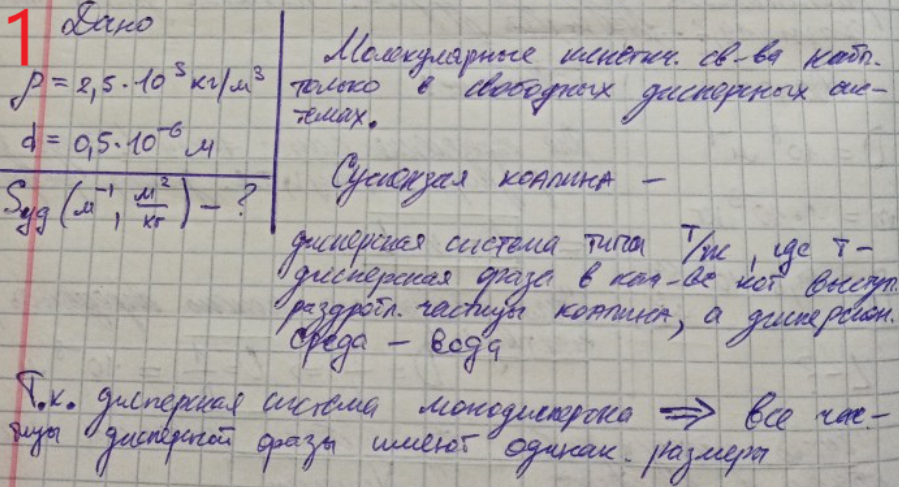 1 Дано
ρ = 2,5·10³ кг/м³
d = 0,5·10⁻⁶ м
Sуд (м⁻¹, м²/кг) – ?
Молекулярные кинетич. св-ва набл.
только в свободных дисперсных сис-
темах.
Суспензия каолина –
дисперсная система типа Т/ж, где Т-
дисперсная фраза в кач-ве кот выступ.
раздробл. частицы каолина, а дисперсион.
среда – вода
Т.к. дисперсная система монодисперсна ⇒ все час-
тицы дисперсной фразы имеют одинак. размеры